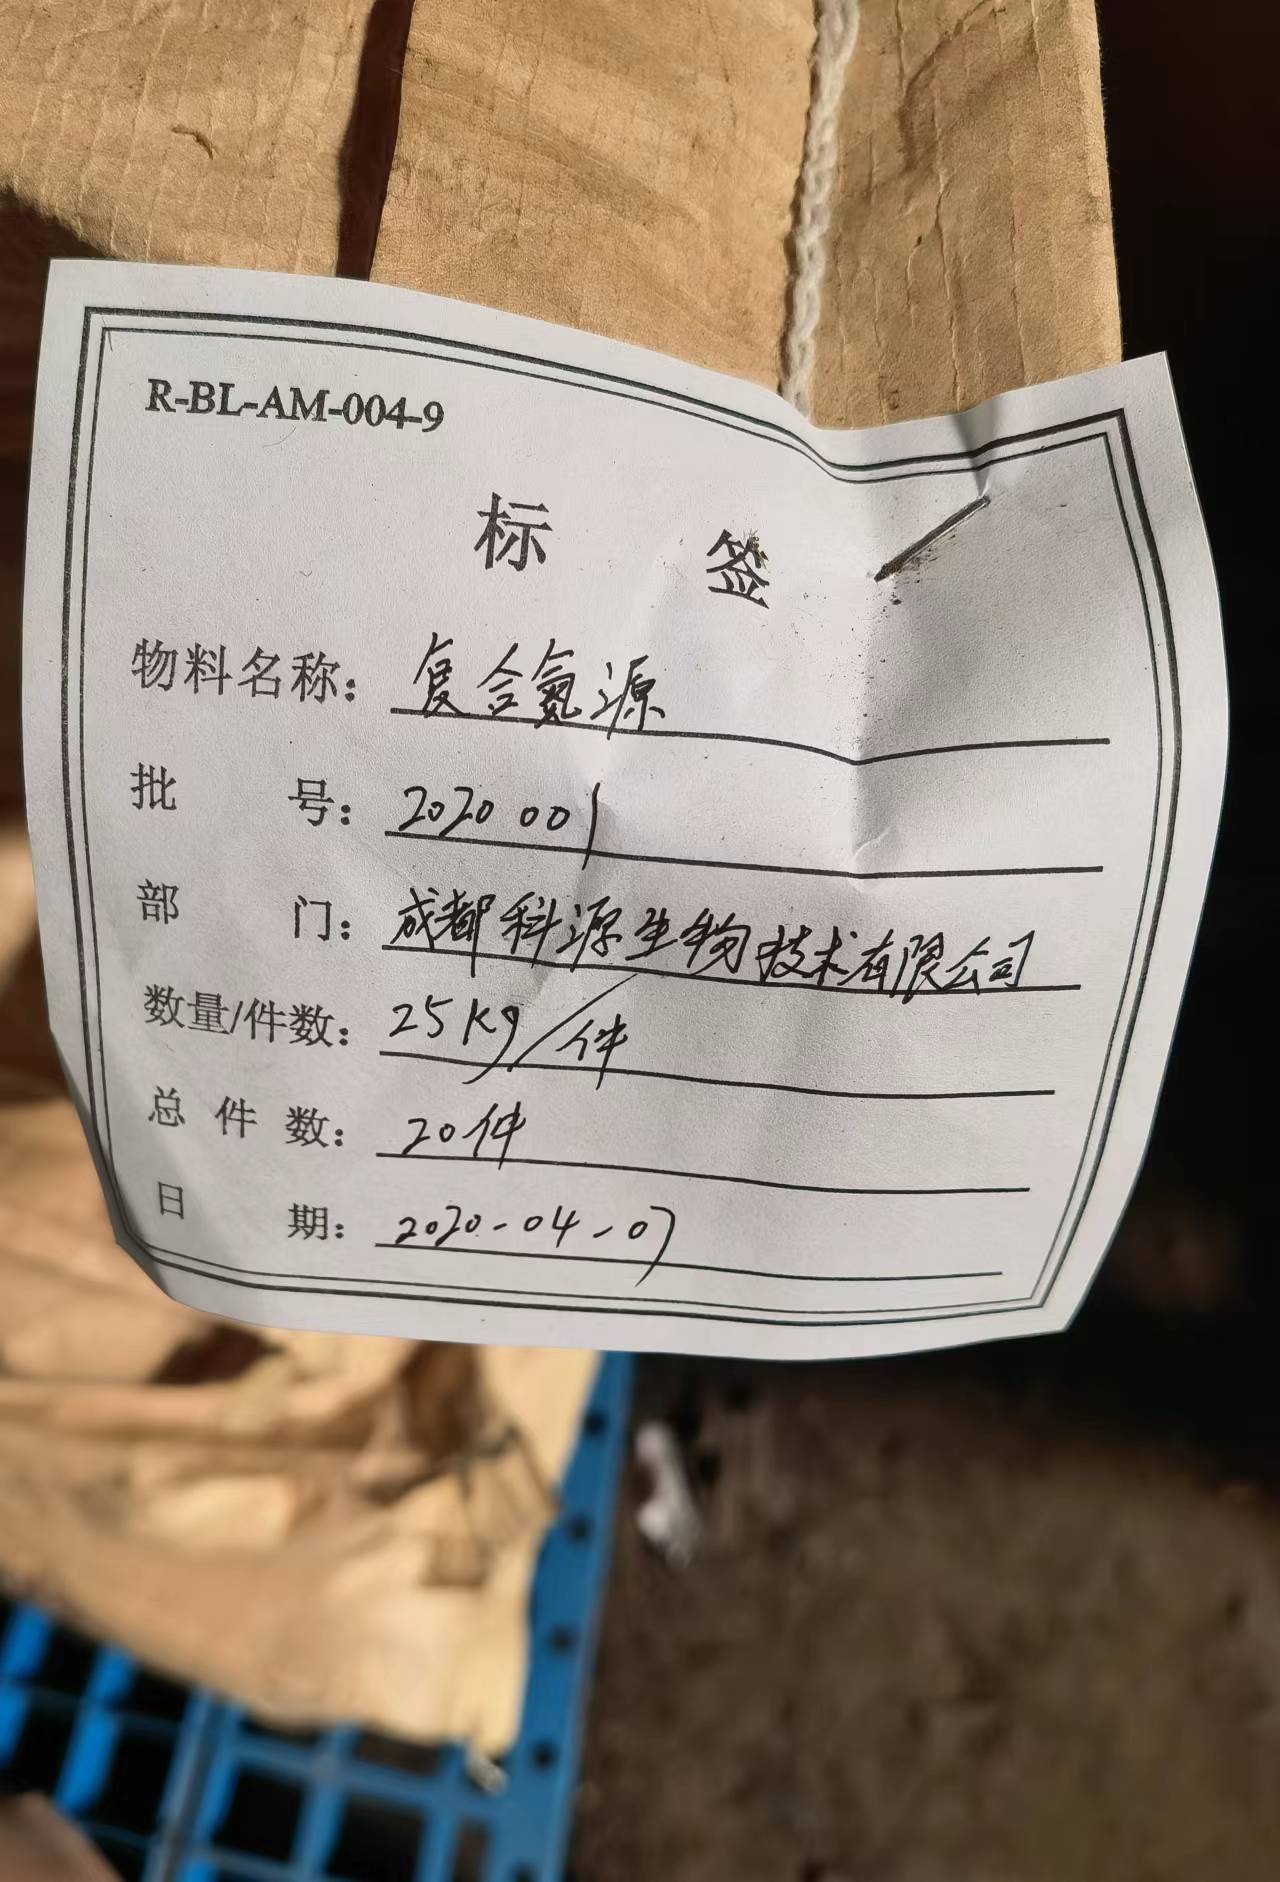 R-BL-AM-004-9
标 签
物料名称：复合氮源
批 号：2020 001
部 门：成都科源生物技术有限公司
数量/件数：25kg/件
总 件 数：20件
日 期：2020-04-07